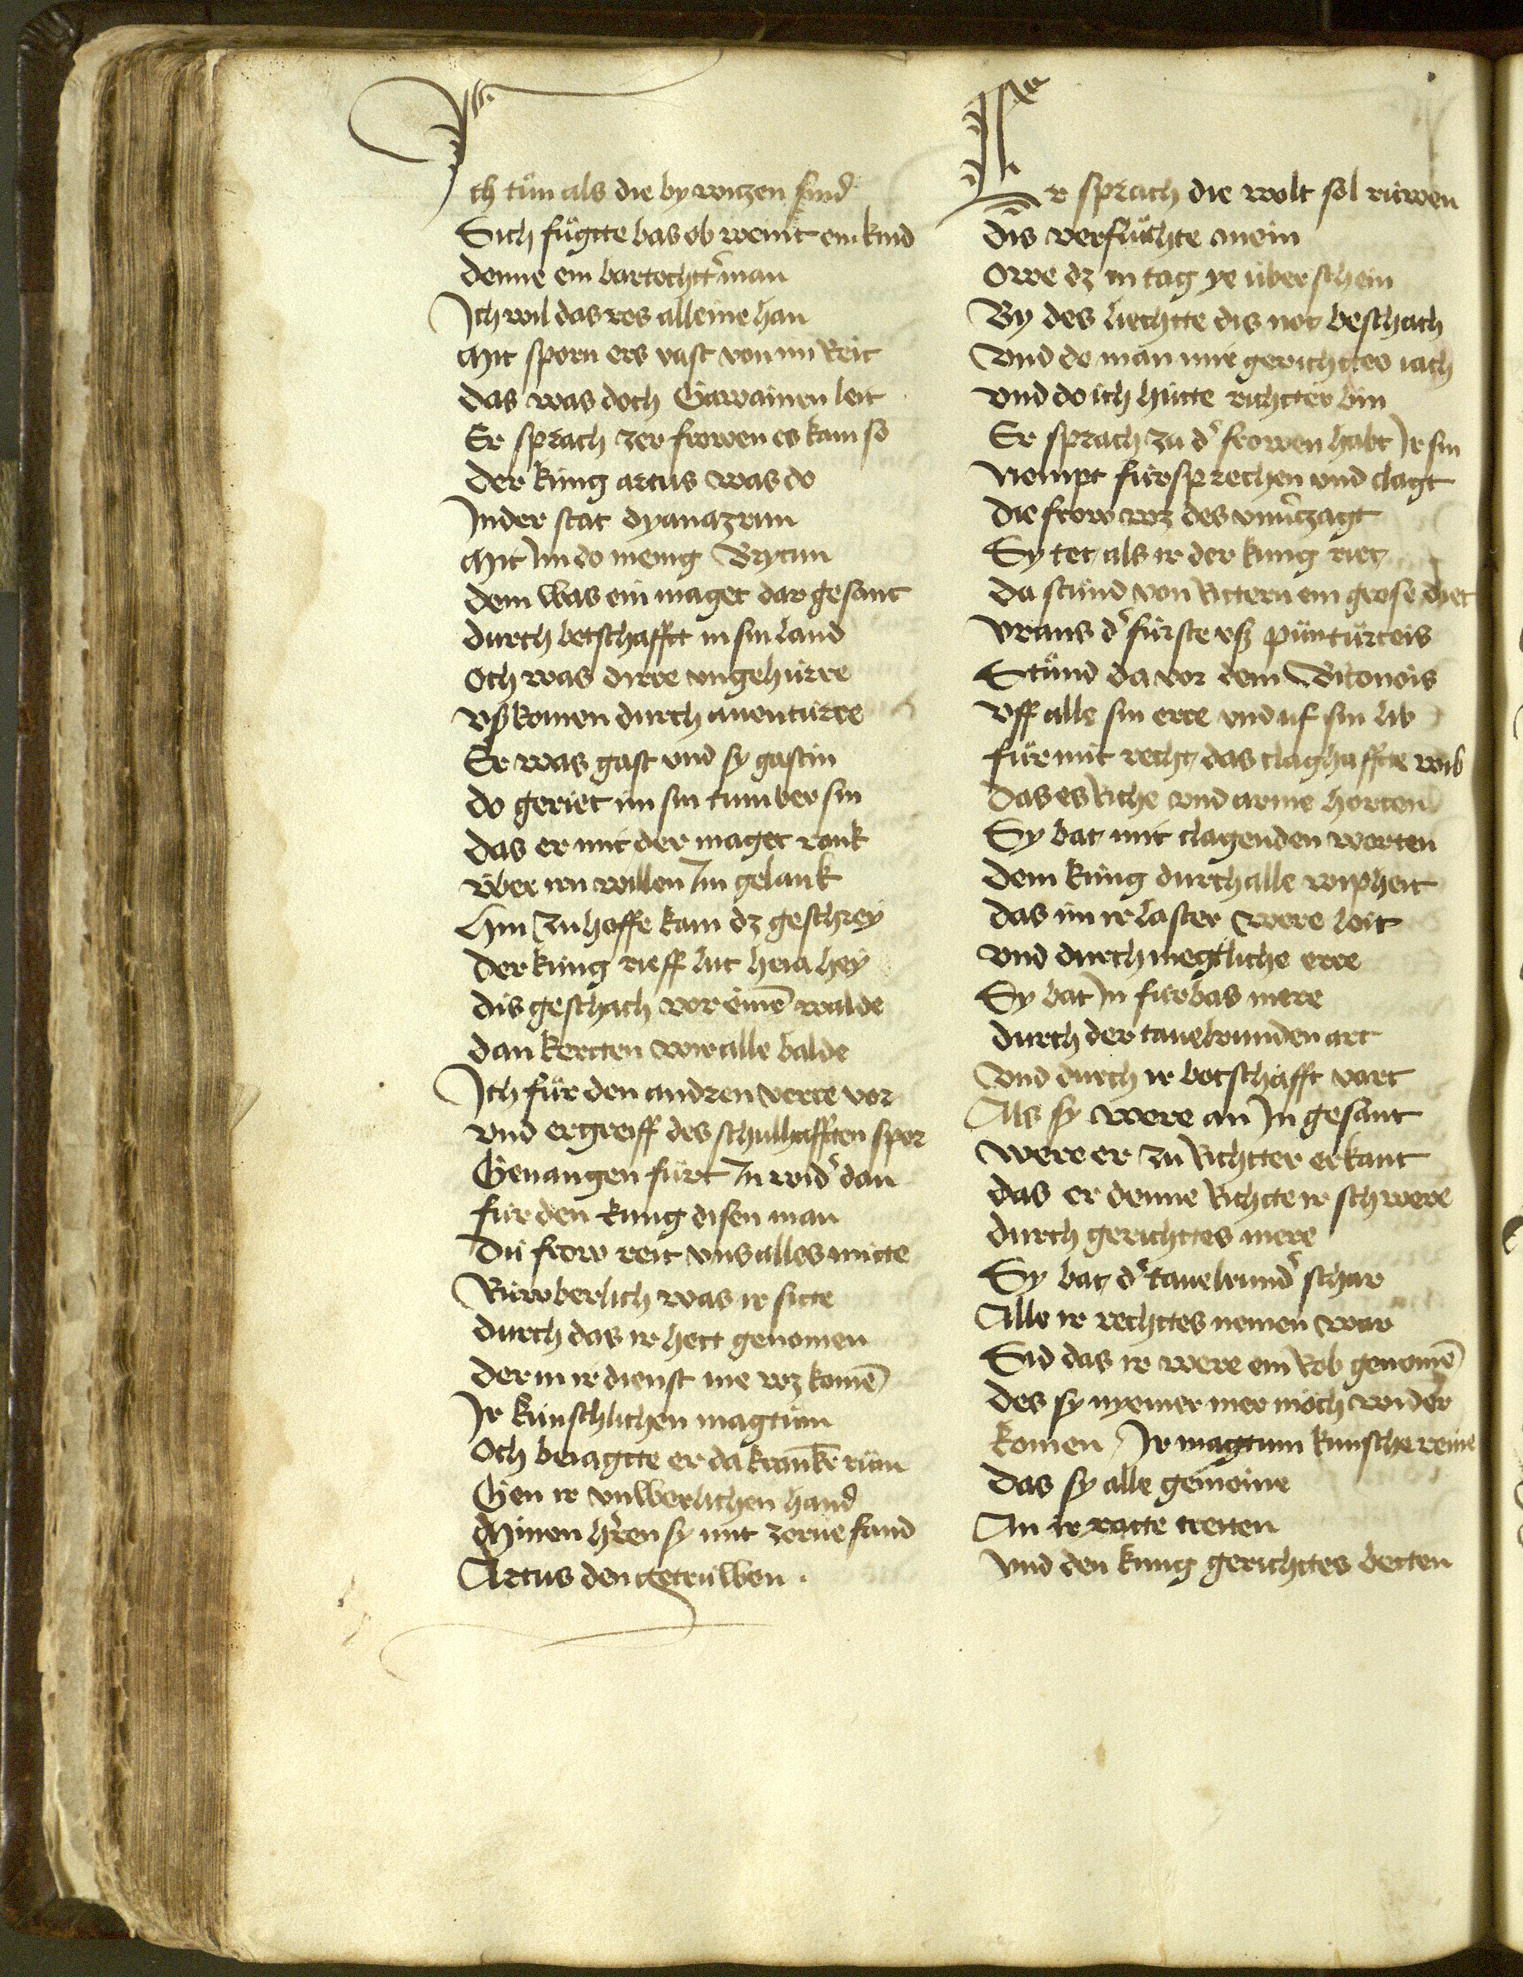 Ich tůn als die by witzen sind
Sich fůgtte bas ob weinit ein kind
denne ein bartochttͬ man
Ich wil das ros alleine han
Mit sporn ers vast von im Reit
das was doch Gawainen leit
Er sprach zer frowen es kam so
Der kúng artus was do
In der stat dyanazrun
Mit Im do menig Brytun
dem was ein maget dar gesant
durch betschafft in sin land
Och was dirre vngehúrre
vß komen durch auentúrre
Er was gast vnd sy gastin
do geriet im sin tumber sin
das er mit der maget rank
v́ber irn willen Im gelank
Hin zu hoffe kam dz geschrey
Der kúng rieff lut heia hey
dis geschach vor einē walde
dan kertten wir alle balde
Ich fůr den andren verre vor
vnd ergreiff des schulhafften spor
Geuangen fůrt In widͬ dan
fúr den kung disen man
Dú frow reit vns alles mitte
Rúwberlich was ir sitte
durch das ir hett genomen
der in ir dienst nie wz komē
Ir kúnschlichen magtům
Och beiagtte er da kranckē rům
Gen ir vnwerlichen hand
Minen hͬren sy mit zorne fand
Artus den getrúwen .
Er sprach die welt sol rúwen
Dis verflůchte mein
Owe dz in tag ye úber schein
By des liechtte dis not beschach
vnd do man mir gerichttes iach
vnd do ich hútte richtter bin
Er sprach zu dͬ frowen habt Ir sin
Nempt fúrsprechen vnd clagt
Die frow wz des vnuͬzagt
Sy tet als ir der kúng riet
Da stůnd von Rittern ein grose diet
vrans dͬ fúrste vß púntúrteis
Stůnd da vor dem Britonois
vff alle sin erre vnd uf sin lib
fúr mit recht das claghaffte wib
Das es Riche vnd arme horten
Sy bat mit clagenden worten
Dem kúng durch alle wipheit
das im ir laster were leit
vnd durch megtliche erre
Sy bat In fúrbas mere
durch der tauelrunden art
vnd durch ir botschafft vart
Als sy were an In gesant
were er zu Richtter erkant
das er denne Richtte ir schwere
durch gerichttes mere
Sy bat dͬ tauelrundͬ schar
Alle ir rechttes nemen war
Sid das ir were ein Rob genomē
des sy nyemer mer móch wider
komen Ir magtum kunsche reine
Das sy alle gemeine
An ir ratte tretten
vnd den kung gerichttes betten